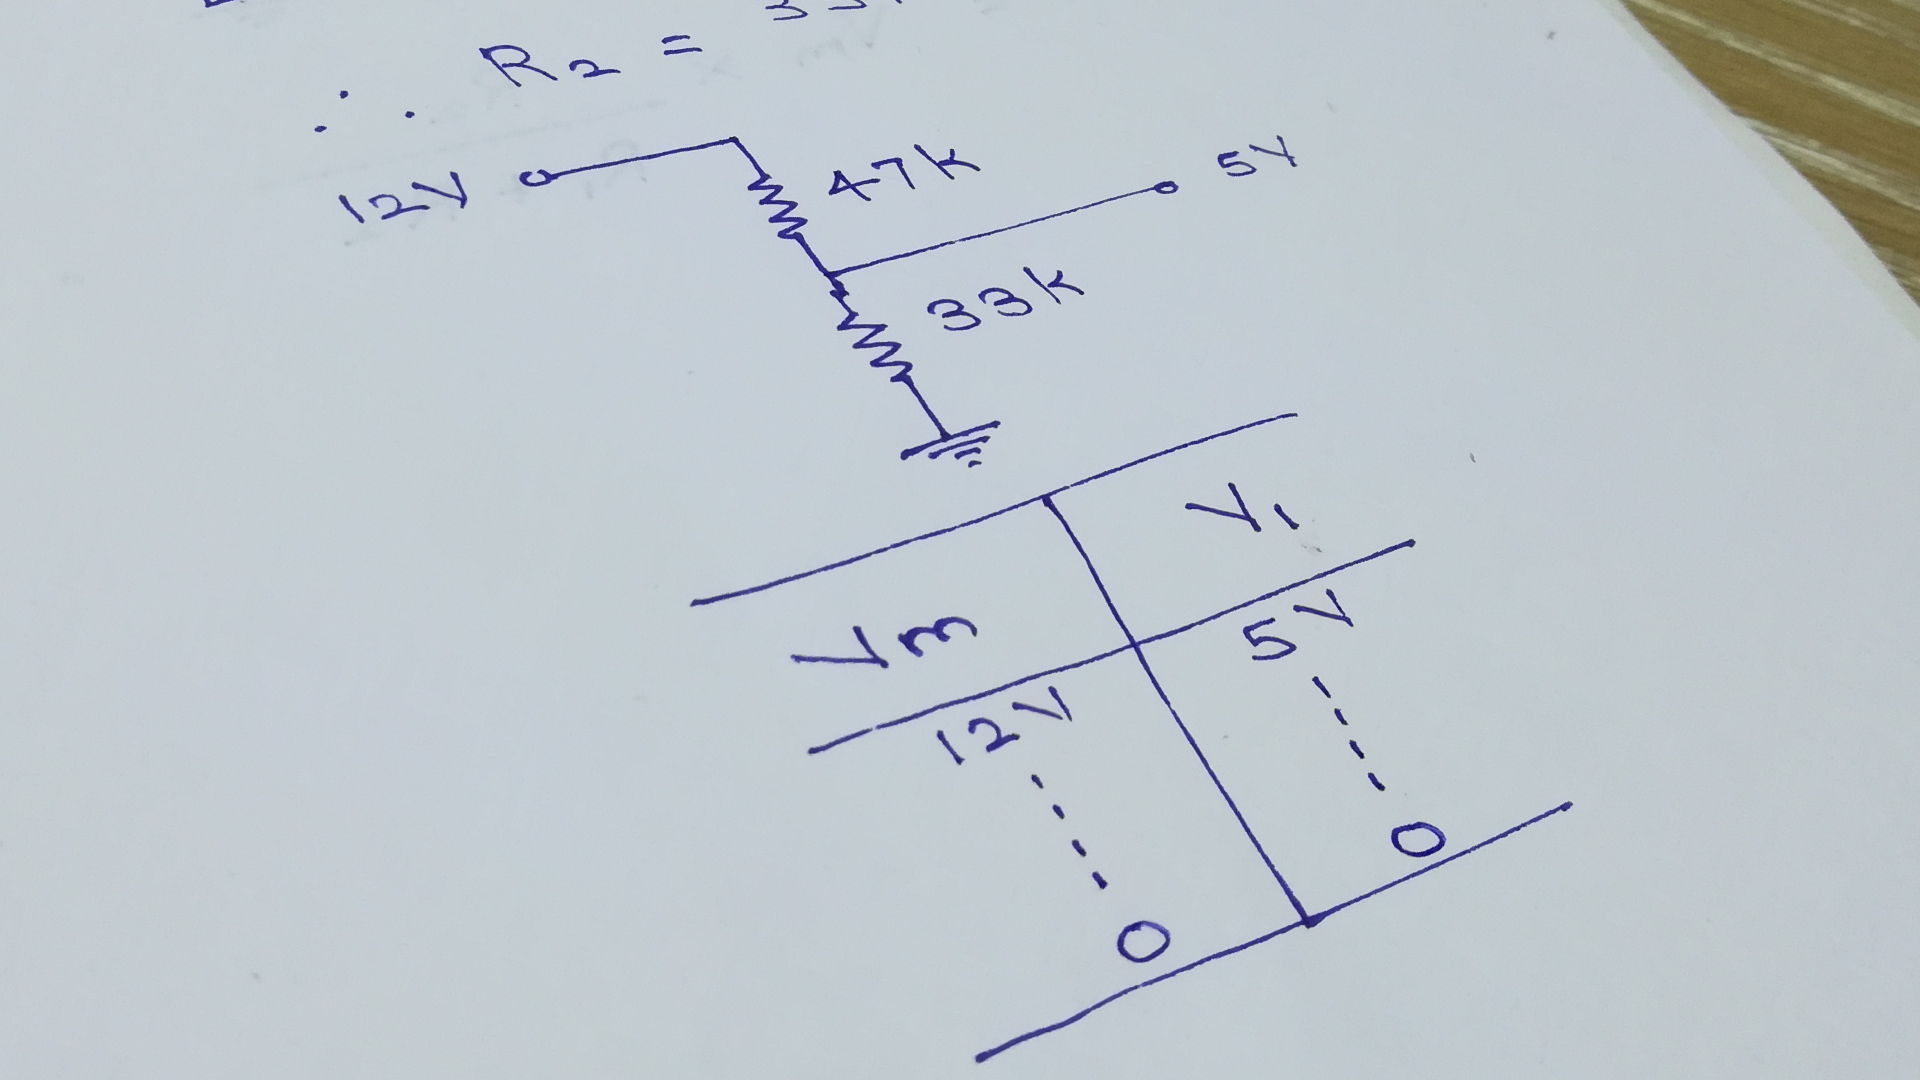 ∴ R2 =
12V
47k
5V
33k
Vm
V1
12V
5V
0
0